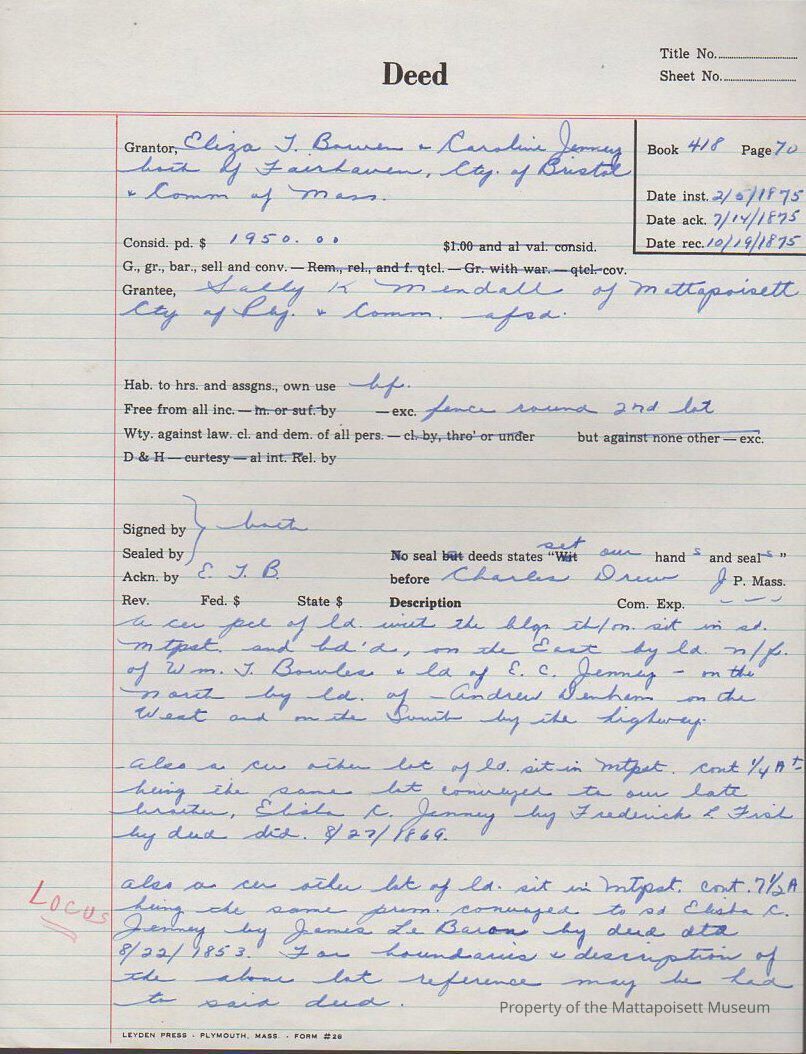 Title No.
Deed
Sheet No.
Grantor, Eliza T. Bowen & Caroline Jenney
both of Fairhaven, Cty. of Bristol
& Comm of Mass.
Book 418 Page 70
Date inst. 2/5/1875
Date ack. 7/14/1875
Date rec. 10/19/1875
Consid. pd. $ 1950.00 $1.00 and al val. consid.
G., gr., bar., sell and conv. — Rem., rel., and f. qtcl. — Gr. with war. — qtcl. cov.
Grantee, Sally K Mendall of Mattapoisett
Cty of Ply. & Comm. afsd.
Hab. to hrs. and assgns., own use bf.
Free from all inc. — m. or suf. by — exc. fence round 2nd lot
Wty. against law. cl. and dem. of all pers. — cl. by, thro' or under but against none other — exc.
D & H — curtesy — al int. Rel. by
Signed by both
Sealed by
No seal but deeds states "Wit set our hands and seals"
Ackn. by E. T. B. before Charles Drew J P. Mass.
Rev. Fed. $ State $ Description Com. Exp. - - -
a cer pcl of ld. with the blgs th/on. sit in sd.
Mtpst. and bd'd, on the East by ld. n/f.
of Wm. T. Bowles & ld of E. C. Jenney - on the
North by ld. of Andrew Denham on the
West and on the South by the highway.
Also a cer other lot of ld. sit in Mtpst. cont 1/4 A ±
being the same lot conveyed to our late
brother, Elisha C. Jenney by Frederick L Fish
by deed dtd. 8/27/1869.
LOCUS
also a cer other lot of ld. sit in Mtpst. cont. 7 1/2 A
being the same prem. conveyed to sd Elisha C.
Jenney by James Le Baron by deed dtd
8/22/1853. For boundaries & description of
the above lot reference may be had
to said deed.
Property of the Mattapoisett Museum
LEYDEN PRESS - PLYMOUTH, MASS. - FORM #26